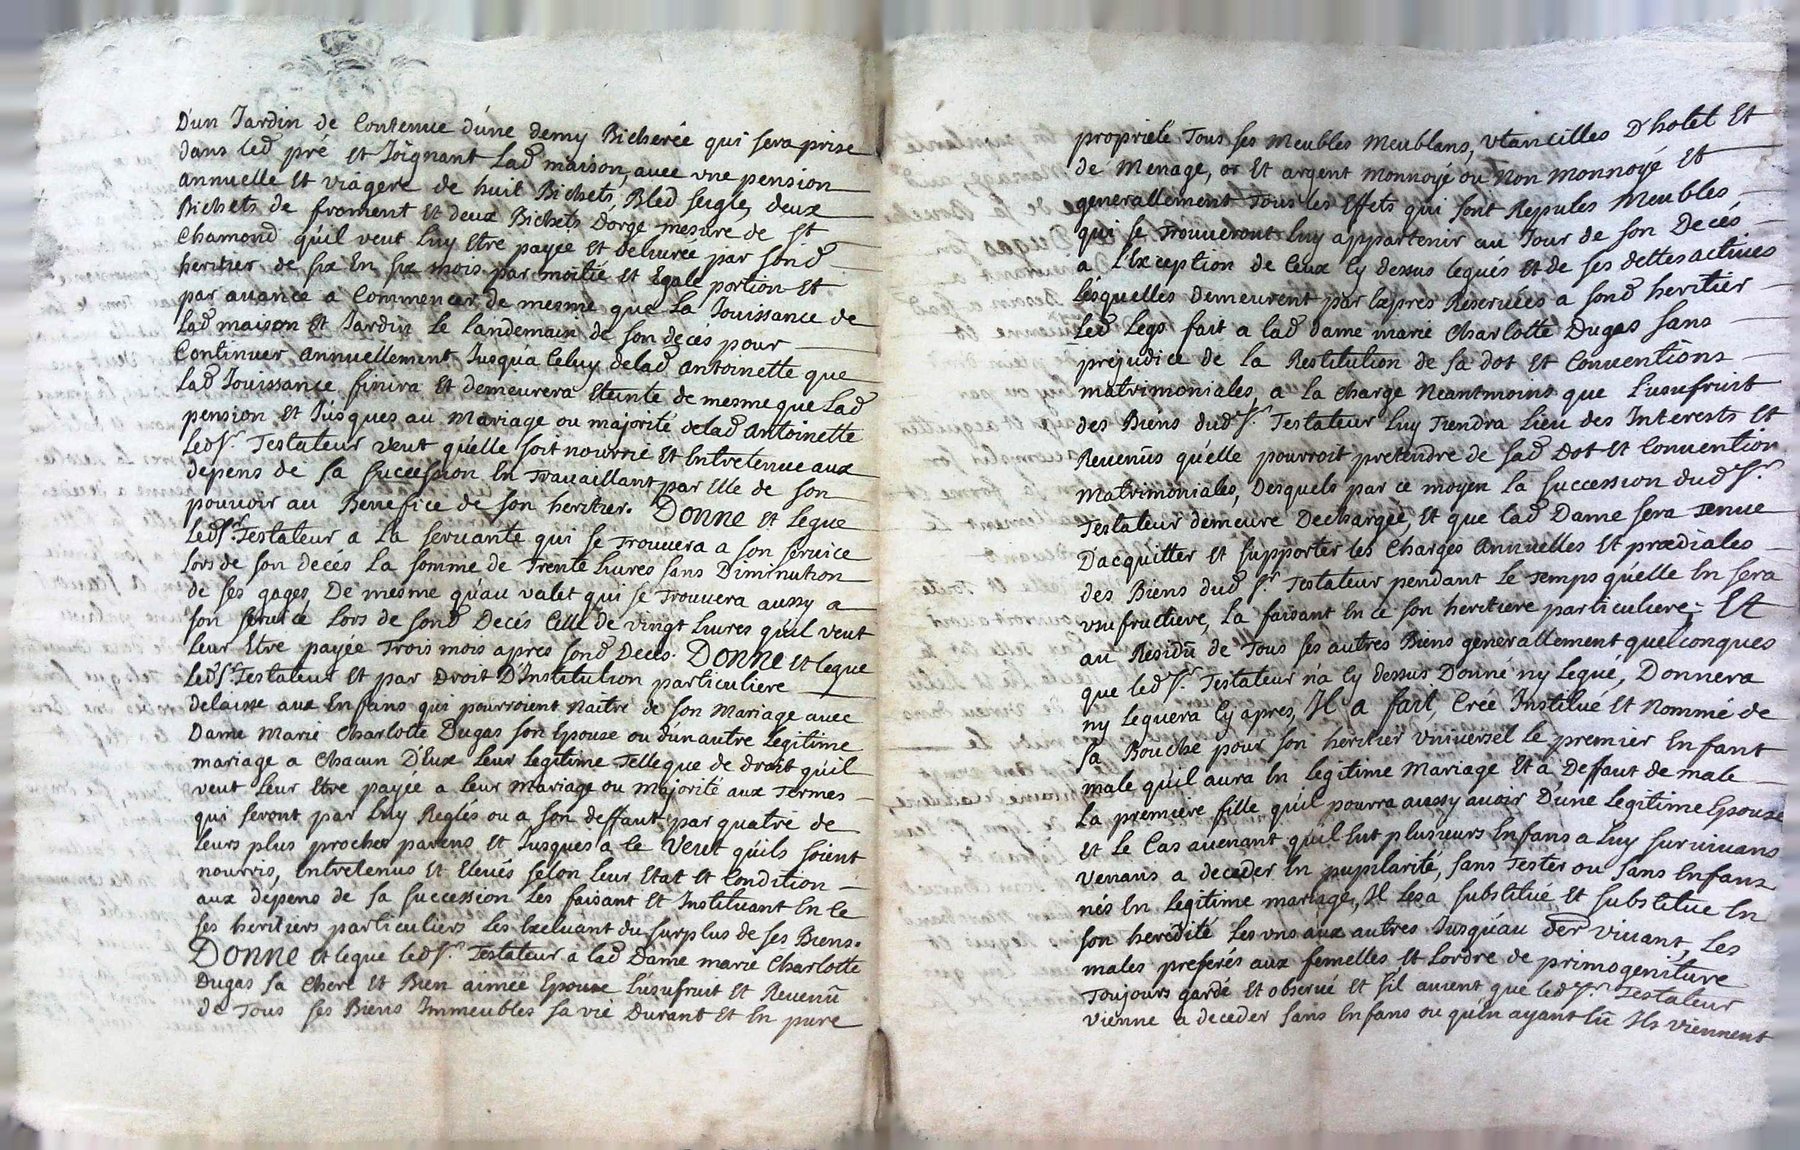 D'un Jardin de Contenue d'une demy Bicherée qui sera prise
dans led pré et Joignant Lad maison, avec vne pension
annuelle Et viagere de huit Bichets, Bled seigle, deux
Bichets de froment Et deux Bichets Dorge mesure de St
Chamond qu'il veut Luy Etre payée Et delivrée par sond
heritier de six En six mois par moitié Et Egale portion Et
par avance a Commencer de mesme que La Jouissance de
Lad maison Et Jardin Le landemain de son decés pour
Continuer annuellement Jusqu'a Celuy delad antoinette que
Lad Jouissance finira Et demeurera Eteinte de mesme que Lad
pension Et Jusques au mariage ou majorité delad antoinette
Led Sr. Testateur veut qu'elle soit nourrie Et Entretenue aux
depens de sa succession En Travaillant par Elle de son
pouvoir au Benefice de son heritier. Donne Et Legue
Led Sr. Testateur a La servante qui se Trouvera a son service
Lors de son decés La somme de Trente Livres sans Diminution
de ses gages, De mesme qu'au valet qui se Trouvera aussy a
son service Lors de sond Decés Celle de vingt Livres qu'il veut
Leur Etre payée Trois mois apres sond Deces. Donne Et legue
Led Sr. Testateur Et par Droit D'Institution particuliere
delaisse aux Enfans qui pourroient Naitre de son Mariage avec
Dame Marie Charlotte Dugas son Epouse ou dun autre Legitime
mariage a Chacun D'Eux Leur Legitime Telle que de droit qu'il
veut Leur Etre payée a leur Mariage ou Majorité aux Termes
qui seront par Luy Reglés ou a son deffaut par quatre de
Leurs plus proches parens Et Jusques a ce Veut qu'ils soient
nourris, Entretenus Et Elevés selon Leur Etat Et Condition
aux depens de sa succession Les faisant Et Instituant En ce
ses heritiers particuliers Les Excluant du surplus de ses Biens.
Donne Et legue led Sr. Testateur a lad Dame marie Charlotte
Dugas sa Chere Et Bien aimée Epouse L'usufruit Et Revenu
de Tous ses Biens Immeubles sa vie Durant Et En pure
propriete Tous ses Meubles Meublans, vtancilles D'hotel Et
de Menage, or Et argent Monnoyé ou Non Monnoyé Et
generallement Tous les Effets qui sont Reputes Meubles
qui se Trouveront Luy appartenir au Jour de son Decés
a L'Exception de Ceux Cy dessus legués Et de ses dettes actives
Lesquelles Demeurent par Exprés Reservées a sond heritier
Led Legs fait a lad dame marie Charlotte Dugas sans
prejudice de La Restitution de sa dot Et Conventions
matrimoniales, a la Charge Neantmoins que L'usufruit
des Biens dud Sr. Testateur Luy Tiendra Lieu des Interests Et
Revenus qu'elle pourroit pretendre de sad Dot Et Convention
Matrimoniales, Desquels par ce moyen La succession dud Sr.
Testateur demeure Dechargée, Et que lad Dame sera Tenue
D'acquitter Et supporter les Charges Annuelles Et prædiales
des Biens dud Sr. Testateur pendant Le Temps qu'elle En sera
vsufructiere, La faisant En ce son heritiere particuliere; Et
au Residu de Tous ses autres Biens generallement quelconques
que led Sr. Testateur n'a Cy dessus Donné ny Legué, Donnera
ny Leguera Cy apres, Il a fait, Creé Institué Et Nommé de
sa Bouche pour son heritier vniversel Le premier Enfant
male qu'il aura En Legitime Mariage Et a Deffaut de male
La premiere fille qu'il pourra aussy avoir D'une Legitime Epouse
et Le Cas avenant qu'il Eut plusieurs Enfans a Luy survivans
venans a deceder En pupilarité, sans Tester ou sans Enfans
nés En Legitime mariage, Il Les a substitué Et substitue En
son heredité Les vns aux autres Jusqu'au der vivant, Les
males preferés aux femelles Et Lordre de primogeniture
Toujours gardé Et observé Et s'il avient que led Sr. Testateur
vienne a deceder sans Enfans ou qu'En ayant Eu Ils viennent